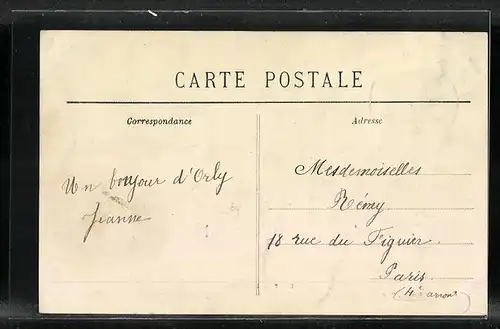 CARTE POSTALE
Correspondance
Adresse
Un bonjour d'Orly
Jeanne
Mesdemoiselles
Rémy
18 rue du Figuier.
Paris
(4e arront